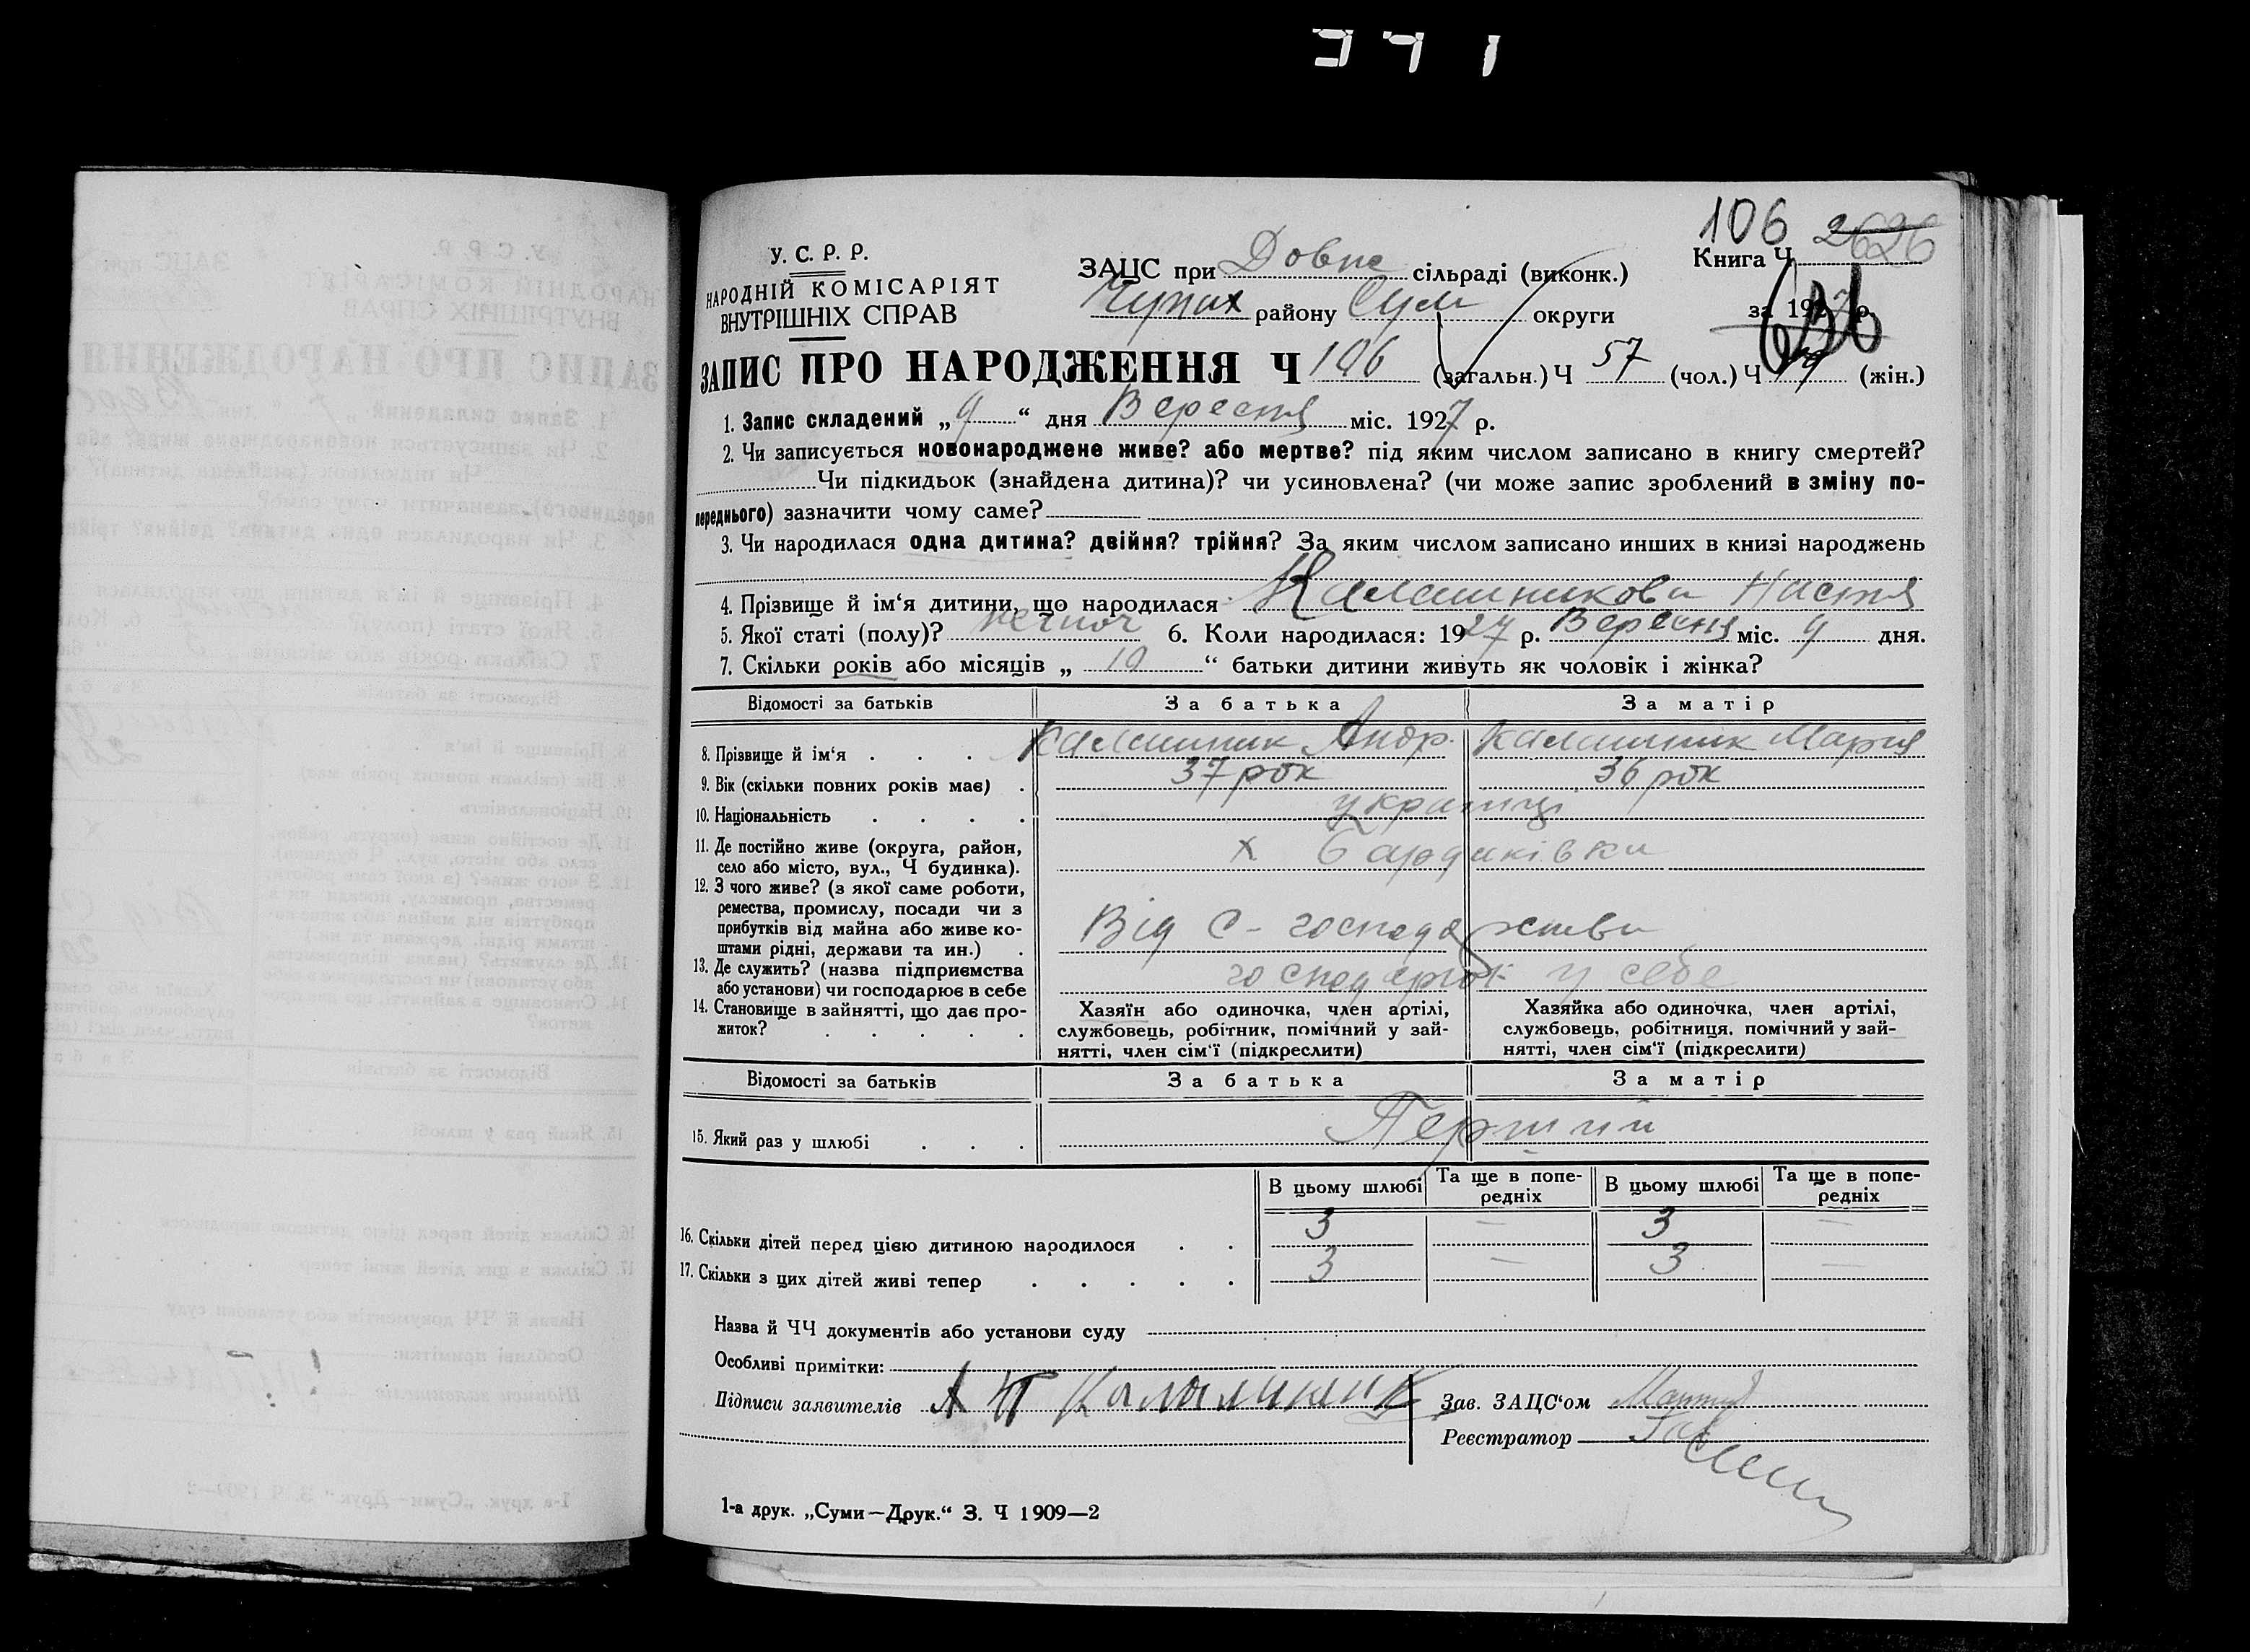 371
106 2626
У. С. Р. Р.
НАРОДНІЙ КОМІСАРІЯТ
ВНУТРІШНІХ СПРАВ
ЗАЦС при Довж сільраді (виконк.)
Чупах району Сум округи
Книга Ч.
636
за 1927 р.
ЗАПИС ПРО НАРОДЖЕННЯ Ч 106 (загальн.) Ч 57 (чол.) Ч 49 (жін.)
1. Запис складений „ 9 “ дня Вересня міс. 1927 р.
2. Чи записується новонароджене живе? або мертве? під яким числом записано в книгу смертей?
Чи підкидьок (знайдена дитина)? чи усиновлена? (чи може запис зроблений в зміну по-
переднього) зазначити чому саме?
3. Чи народилася одна дитина? двійня? трійня? За яким числом записано инших в книзі народжень
4. Прізвище й ім‘я дитини, що народилася Калашникова Настя
5. Якої статі (полу)? жіноч 6. Коли народилася: 1927 р. Вересня міс. 9 дня.
7. Скільки років або місяців „ 10 “ батьки дитини живуть як чоловік і жінка?
Відомості за батьків За батька За матір
8. Прізвище й ім‘я . . . Калашник Андр. Калашник Марія
9. Вік (скільки повних років має) . 37 рок 36 рок
10. Національність . . . . українці
11. Де постійно живе (округа, район,
село або місто, вул., Ч будинка). х
12. З чого живе? (з якої саме роботи,
ремества, промислу, посади чи з
прибутків від майна або живе ко-
штами рідні, держави та ин.) . Від С-господарства
13. Де служить? (назва підприємства
або установи) чи господарює в себе у себе
14. Становище в зайнятті, що дає про-
житок? . . . . .
Хазяїн або одиночка, член артілі,
службовець, робітник, помічний у зай-
нятті, член сім‘ї (підкреслити)
Хазяйка або одиночка, член артілі,
службовець, робітниця, помічний у зай-
нятті, член сім‘ї (підкреслити)
Відомості за батьків За батька За матір
15. Який раз у шлюбі . . . Перший
В цьому шлюбі Та ще в попе-
редніх В цьому шлюбі Та ще в попе-
редніх
16. Скільки дітей перед цією дитиною народилося . . 3 — 3 —
17. Скільки з цих дітей живі тепер . . . . . 3 — 3 —
Назва й ЧЧ документів або установи суду
Особливі примітки:
Підписи заявителів А П Калашник
Зав. ЗАЦС‘ом
Реєстратор
1-а друк. „Суми—Друк.“ З. Ч 1909—2